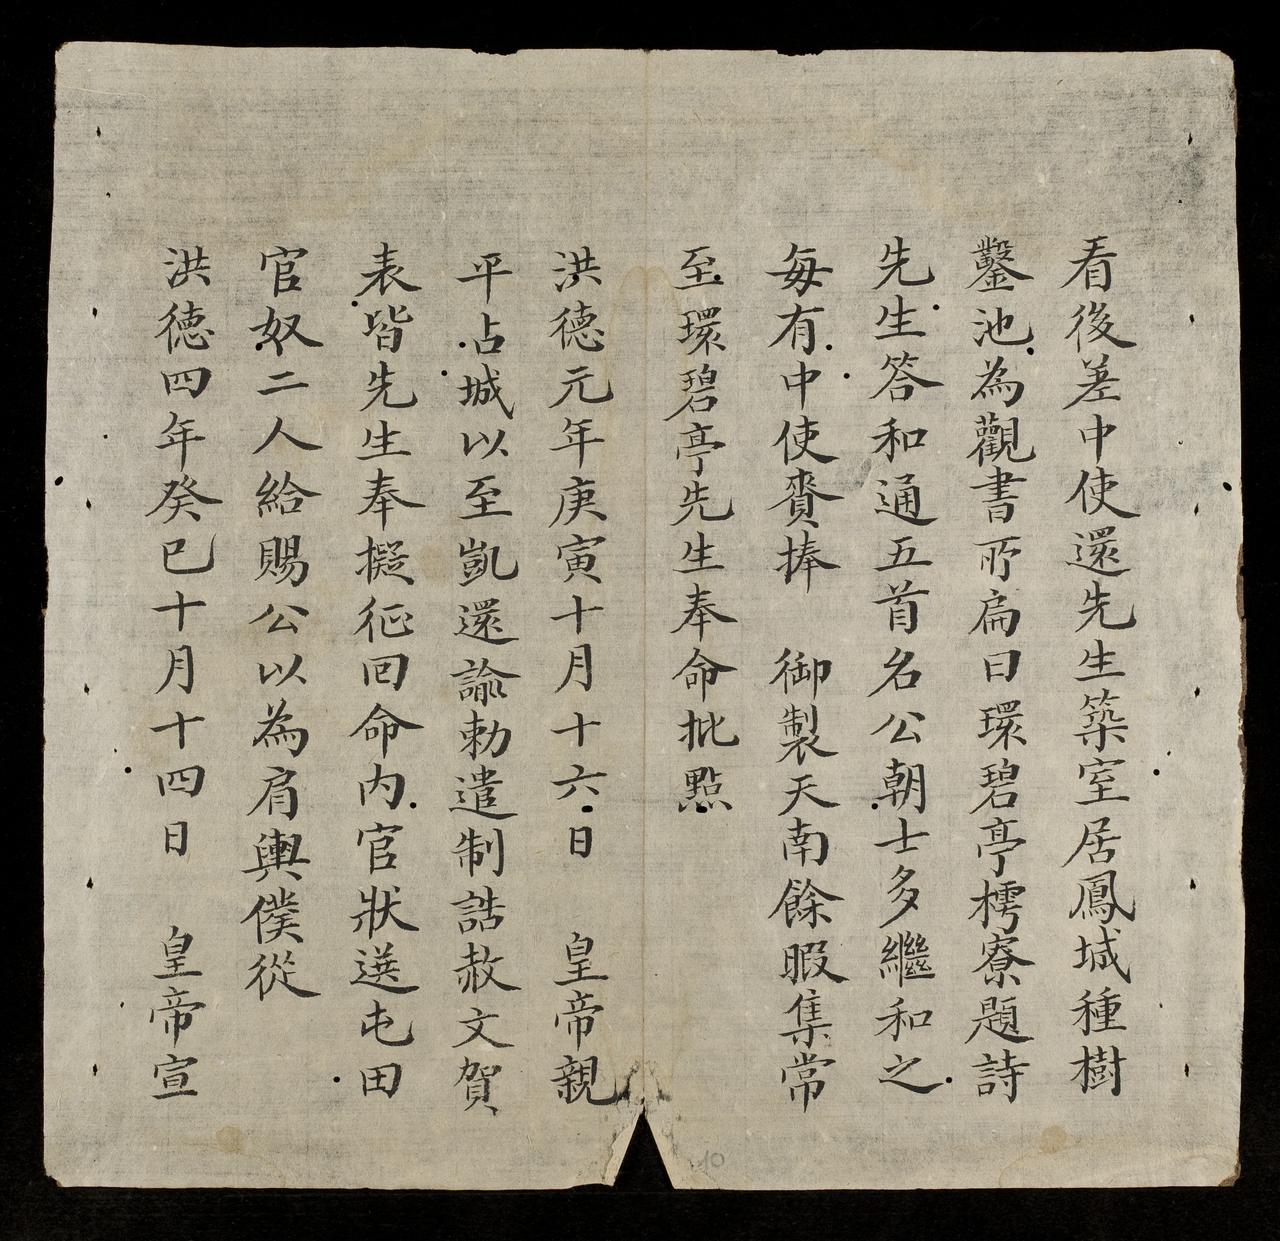 看後差中使還先生築室居鳳城種樹
鑿池為觀書所扁曰環碧亭樗寮題詩
先生答和通五首名公朝士多繼和之
每有中使賫捧 御製天南餘暇集常
至環碧亭先生奉命批點
洪德元年庚寅十月十六日 皇帝親
平占城以至凱還諭勅遣制誥赦文賀
表皆先生奉擬征回命內官狀選屯田
官奴二人給賜公以為肩輿僕從
洪德四年癸巳十月十四日 皇帝宣
10